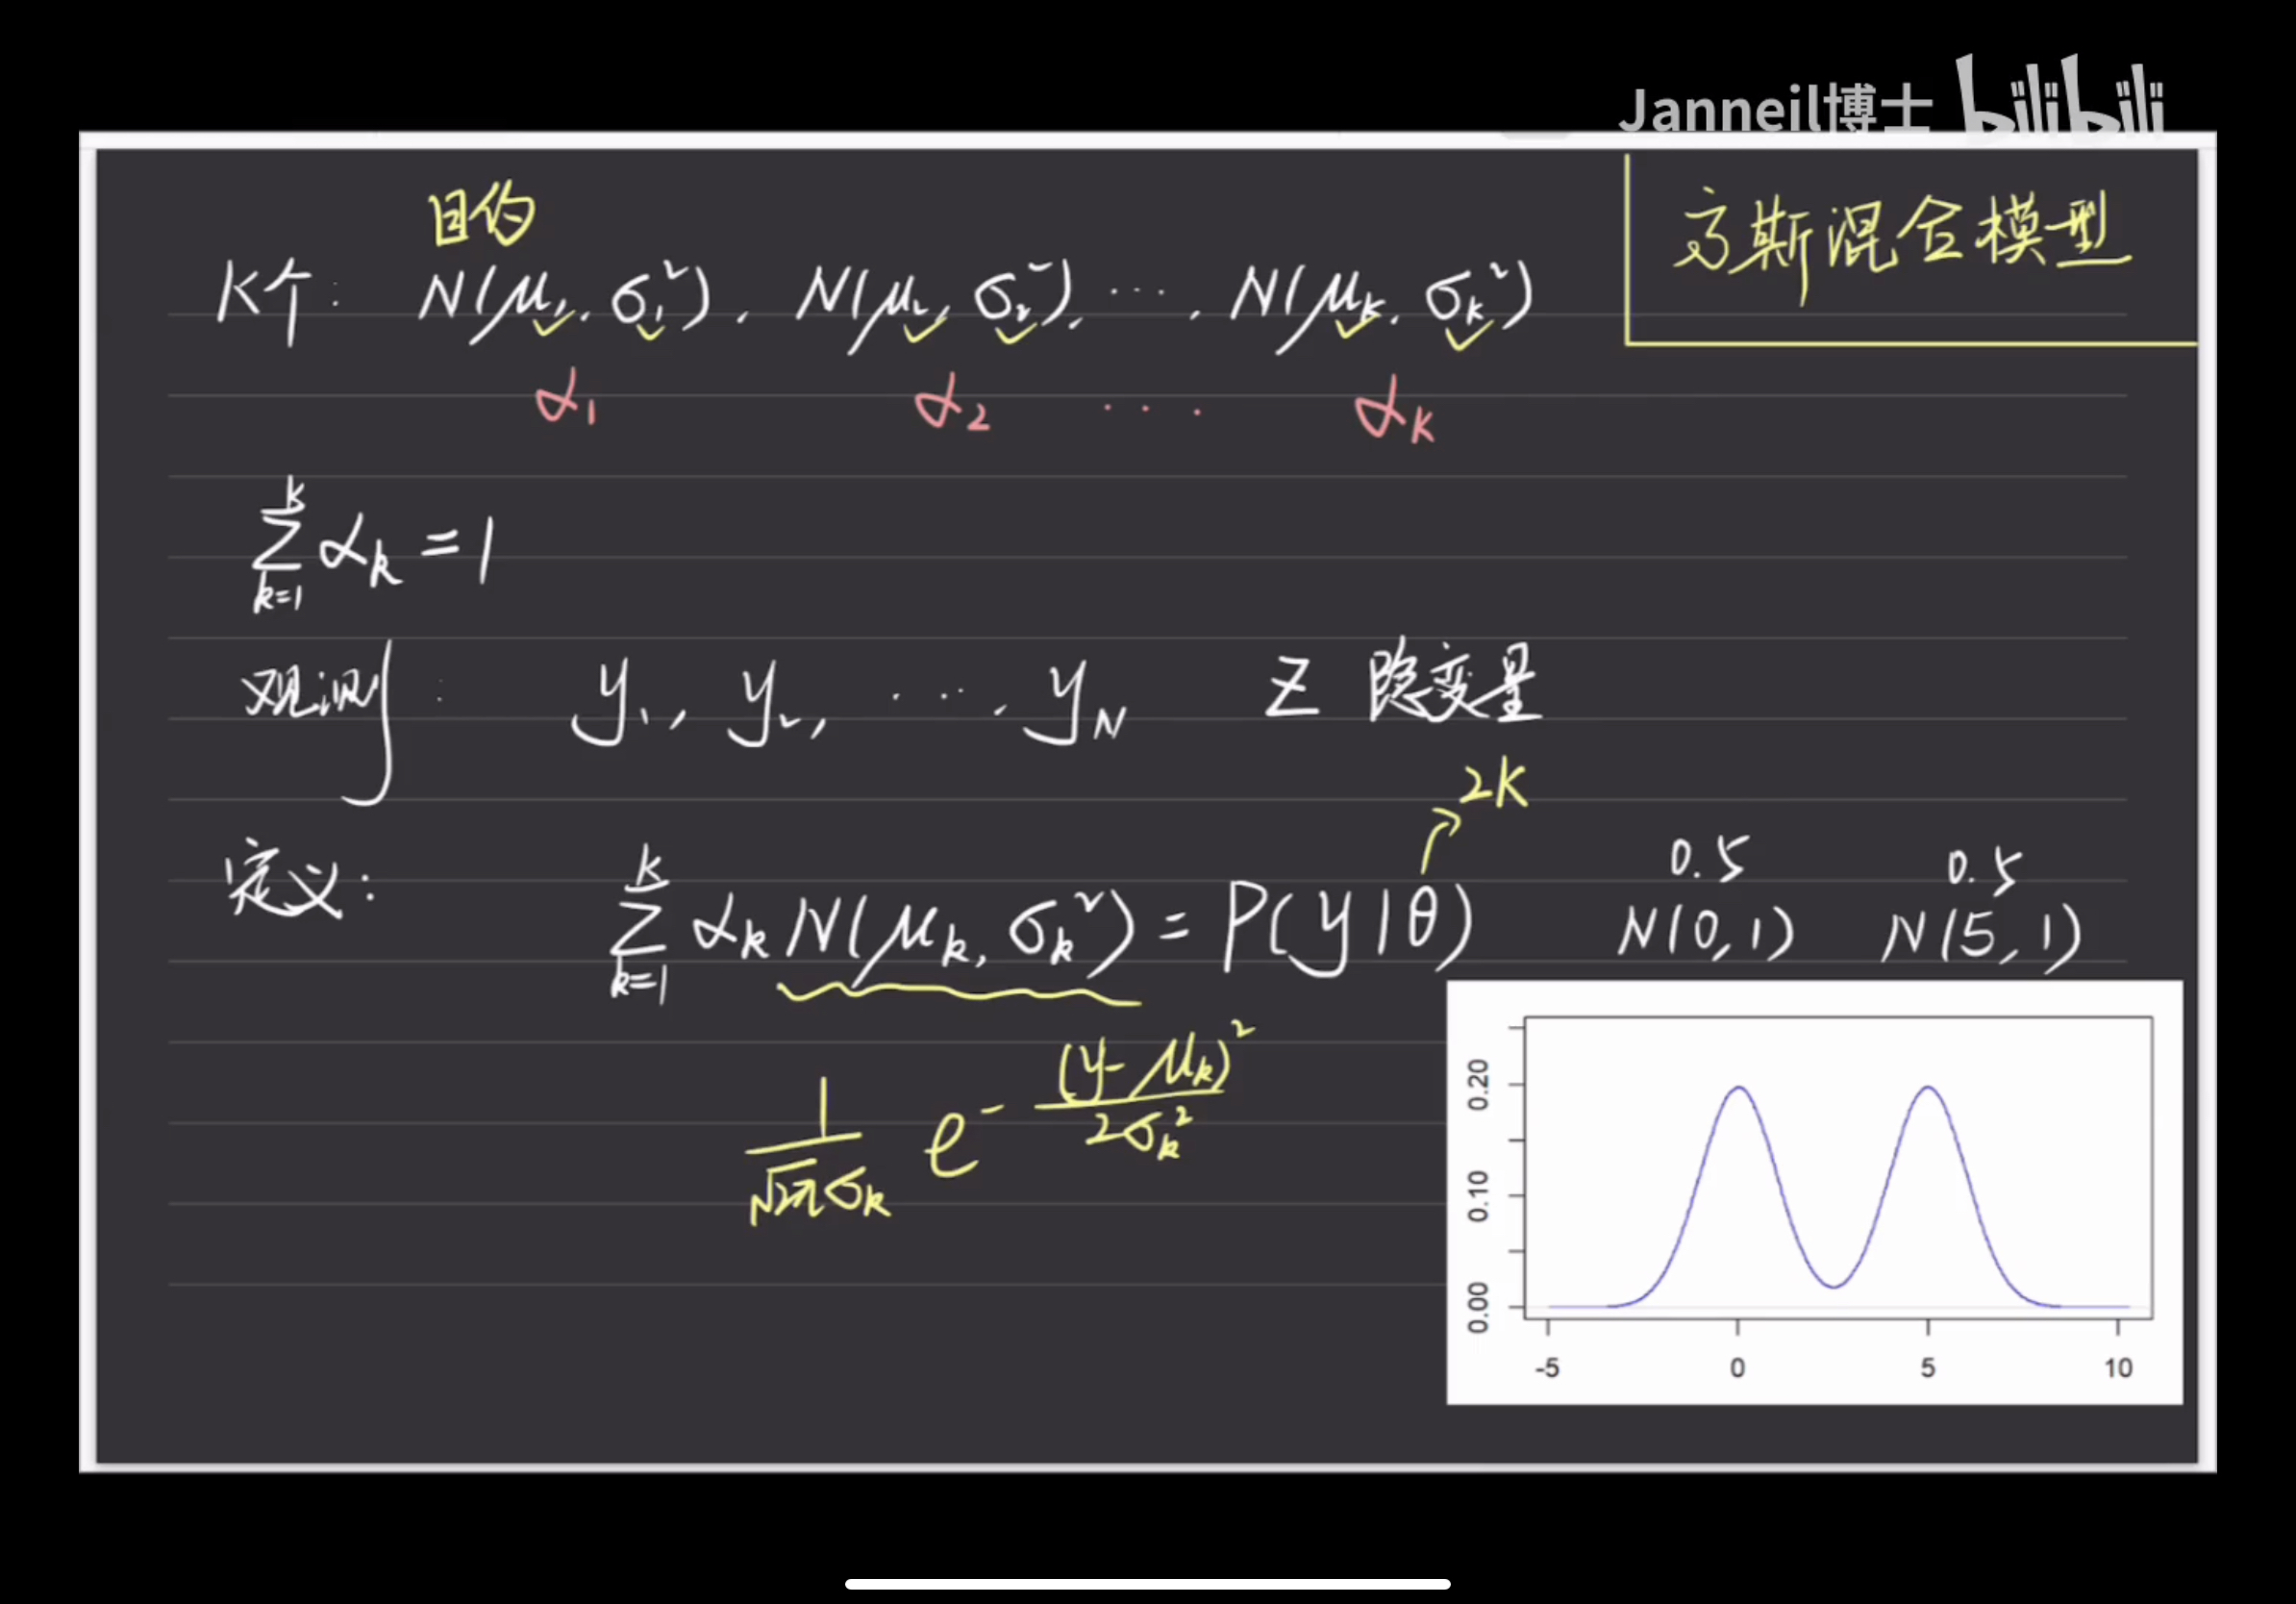 Janneil博士 bilibili
高斯混合模型
目的
K个: N(μ₁, σ₁²), N(μ₂, σ₂²), ..., N(μₖ, σₖ²)
α₁ α₂ ... αₖ
∑ₖ₌₁ᴷ αₖ = 1
观测: y₁, y₂, ..., y_N Z 隐变量
2K
定义: ∑ₖ₌₁ᴷ αₖ N(μₖ, σₖ²) = P(y|θ)
0.5 0.5
N(0,1) N(5,1)
1/(√2π σₖ) e^(-(y-μₖ)²/(2σₖ²))
0.20
0.10
0.00
-5 0 5 10